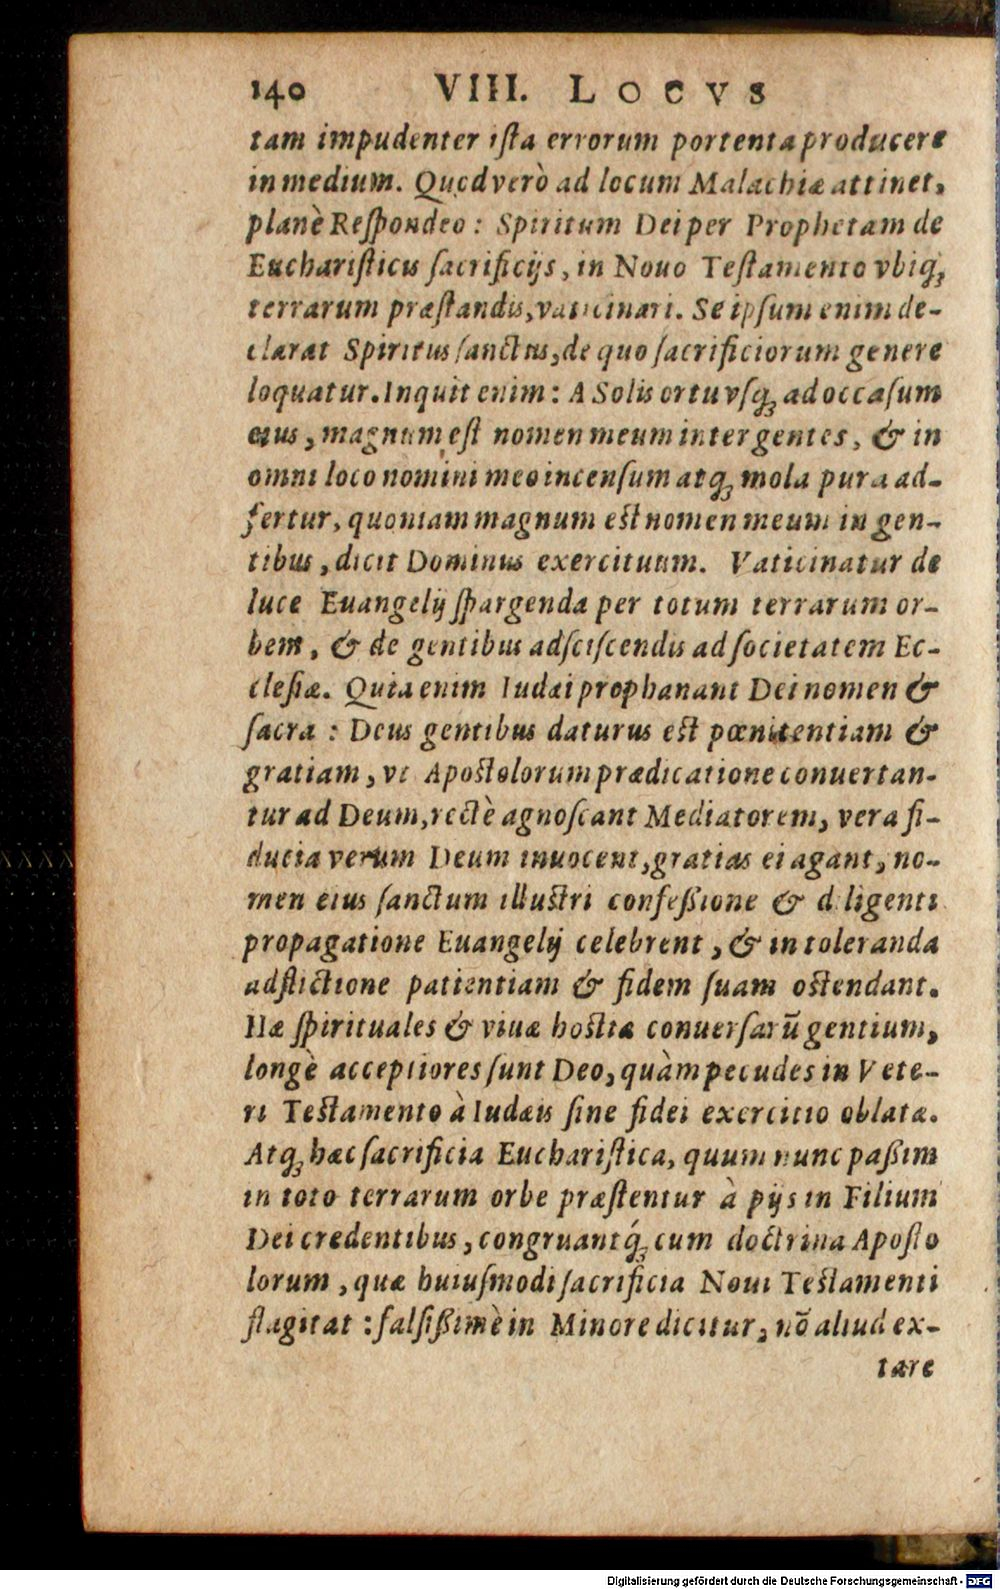 140 VIII. LOCVS
tam impudenter iſta errorum portenta producere
in medium. Quod verò ad locum Malachiæ attinet,
planè Reſpondeo: Spiritum Dei per Prophetam de
Euchariſticis ſacrificijs, in Nouo Teſtamento vbiq́;
terrarum præſtandis, vaticinari. Se ipſum enim de-
clarat Spiritus ſanctus, de quo ſacrificiorum genere
loquatur. Inquit enim: A Solis ortu vſq; ad occaſum
eius, magnum eſt nomen meum inter gentes, & in
omni loco nomini meo incenſum atq; mola pura ad-
fertur, quoniam magnum eſt nomen meum in gen-
tibus, dicit Dominus exercituum. Vaticinatur de
luce Euangelij ſpargenda per totum terrarum or-
bem, & de gentibus adſciſcendis ad ſocietatem Ec-
cleſiæ. Quia enim Iudæi prophanant Dei nomen &
ſacra: Deus gentibus daturus eſt pœnitentiam &
gratiam, vt Apoſtolorum prædicatione conuertan-
tur ad Deum, rectè agnoſcant Mediatorem, vera fi-
ducia verum Deum inuocent, gratias ei agant, no-
men eius ſanctum illuſtri confeßione & diligenti
propagatione Euangelij celebrent, & in toleranda
adflictione patientiam & fidem ſuam oſtendant.
Hæ ſpirituales & viuæ hoſtiæ conuerſarū gentium,
longè acceptiores ſunt Deo, quàm pecudes in Vete-
ri Teſtamento à Iudæis ſine fidei exercitio oblatæ.
Atq; hæc ſacrificia Euchariſtica, quum nunc paßim
in toto terrarum orbe præſtentur à pijs in Filium
Dei credentibus, congruantq́; cum doctrina Apoſto
lorum, quæ huiuſmodi ſacrificia Noui Teſtamenti
flagitat: falſißimè in Minore dicitur, nō aliud ex-
tare
Digitalisierung gefördert durch die Deutsche Forschungsgemeinschaft - DFG